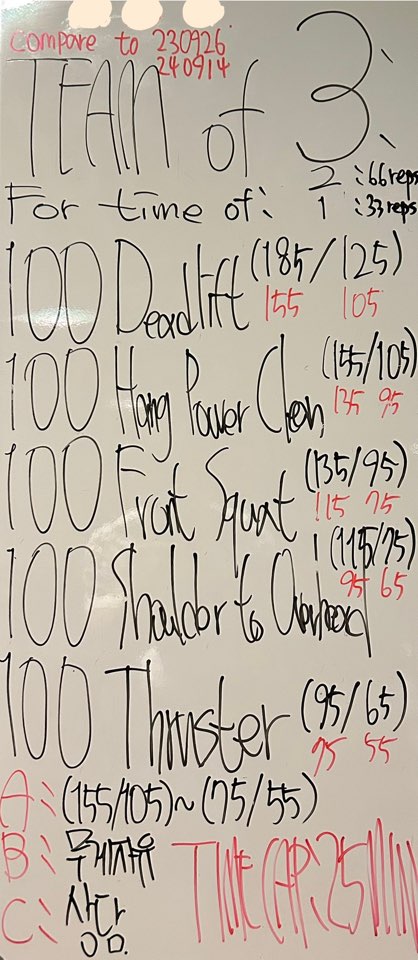 compare to 230926
240914
TEAM of 3:
2 : 66 reps
For time of: 1 : 33 reps
100 Deadlift (185/125)
155 105
100 Hang Power Clean (155/105)
135 95
100 Front Squat (135/95)
115 75
100 Shoulder to Overhead (115/75)
95 65
100 Thruster (95/65)
75 55
A: (155/105)~(75/55)
B: 무게자유
C: 상담
TIME CAP: 25 MIN